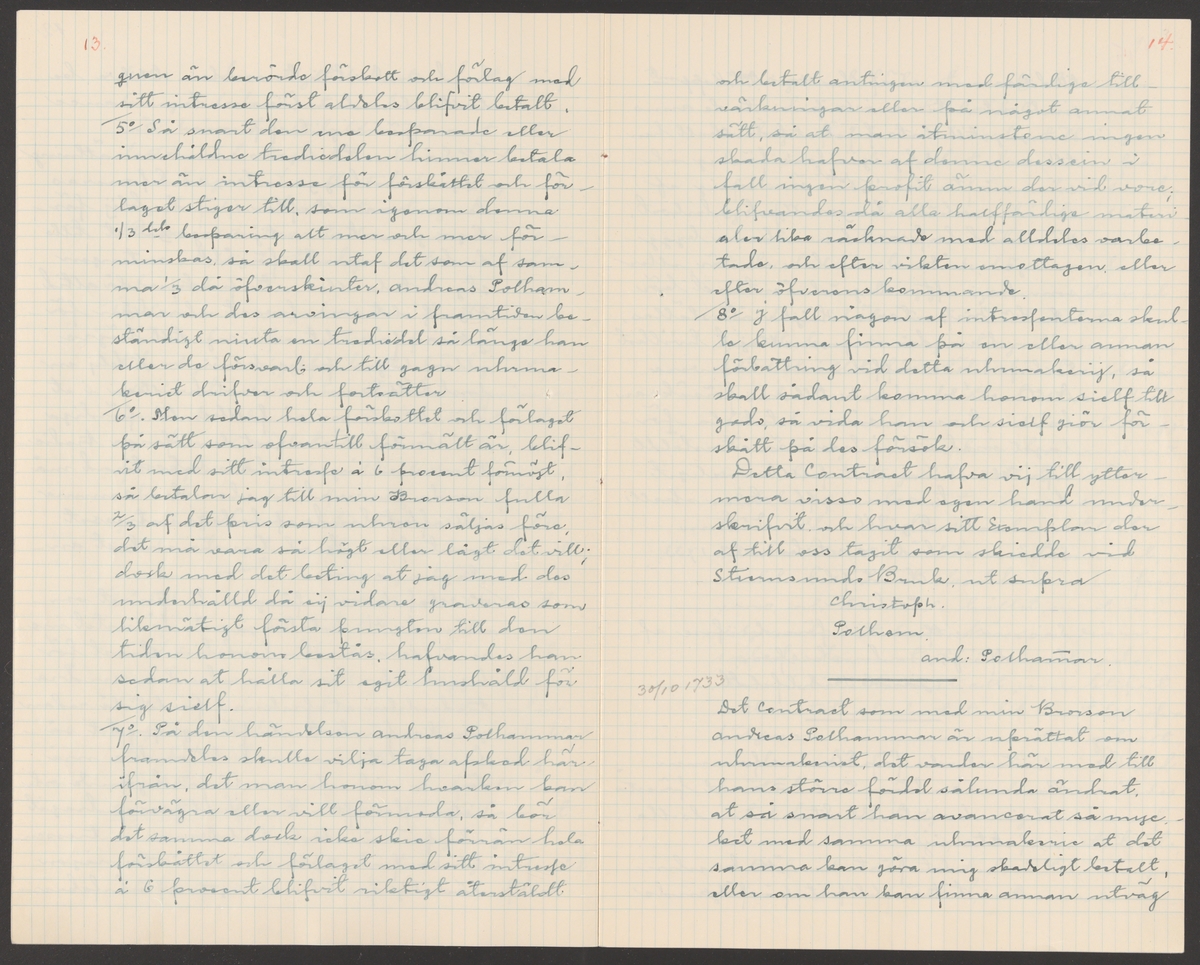 13.
gnen än berörde förskott och förlag med
sitt intresse först aldeles blifvit betalt.
5º/ Så snart den ene besparade eller
innehåldne trediedelen hinner betala
mer än intresse för förskåttet och för-
laget stiger till, som igenom denne
1/3 dels besparing alt mer och mer för-
minskas, så skall utaf det som af sam-
ma 1/3 då öfverskiuter, andreas Polham-
mar och des arvingar i framtiden be-
ständigt niuta en trediedel så länge han
eller de försvarl: och till gagn uhrma-
keriet drifver och fortsätter
6º/. Men sedan hela förskottet och förlaget
på sätt som ofvantill förmält är, blif-
vit med sitt intresse à 6 procent förnögt,
så betalar jag till min Brorson fulla
2/3 af det pris som uhren säljas före,
det må vara så högt eller lågt det vill;
dock med det beting at jag med des
underhålld då eij vidare graveras som
likmätigt första pungten till den
tiden honom bestås, hafvandes han
sedan at hålla sit egit hushåld för
sig sielf.
7º/. På den händelsen andreas Polhammar
framdeles skulle vilja taga afsked här-
ifrån, det man honom hvarken kan
förvägra eller vill förmoda, så bör
det samma dock icke skie förrän hela
förskåttet och förlaget med sitt intresse
à 6 procent blifvit riktigt återstäldt
14.
och betalt antingen med färdige till-
värkningar eller på något annat
sätt, så at man åtminstone ingen
skada hafver af denne dessein i
fall ingen profit ännu der vid vore;
blifvandes då alla halffärdige materi
aler lika räcknade med alldeles varbe-
tade, och efter vikten emottagen, eller
efter öfverenskommande.
8º/ J fall någon af intressenterna skul-
le kunna finna på en eller annan
förbättring vid detta uhrmakerij, så
skall sådant komma honom sielf till
godo, så vida han och sielf giör för-
skått på des försök.
Detta Contract hafva vij till ytter-
mera visso med egen hand under-
skrifvit och hvar sitt Exemplar der
af till oss tagit som skiedde vid
Stiernsunds Bruk, ut supra
Christoph.
Polhem.
and: Polham̄ar.
30/10 1733
Det Contract som med min Brorson
andreas Polhammar är uprättat om
uhrmakeriet, det varder här med till
hans större fördel sålunda ändrat,
at så snart han avancerat så myc-
ket med samma uhrmakerie at det
samma kan göra mig skadeligt betalt,
eller om han kan finna annan utväg